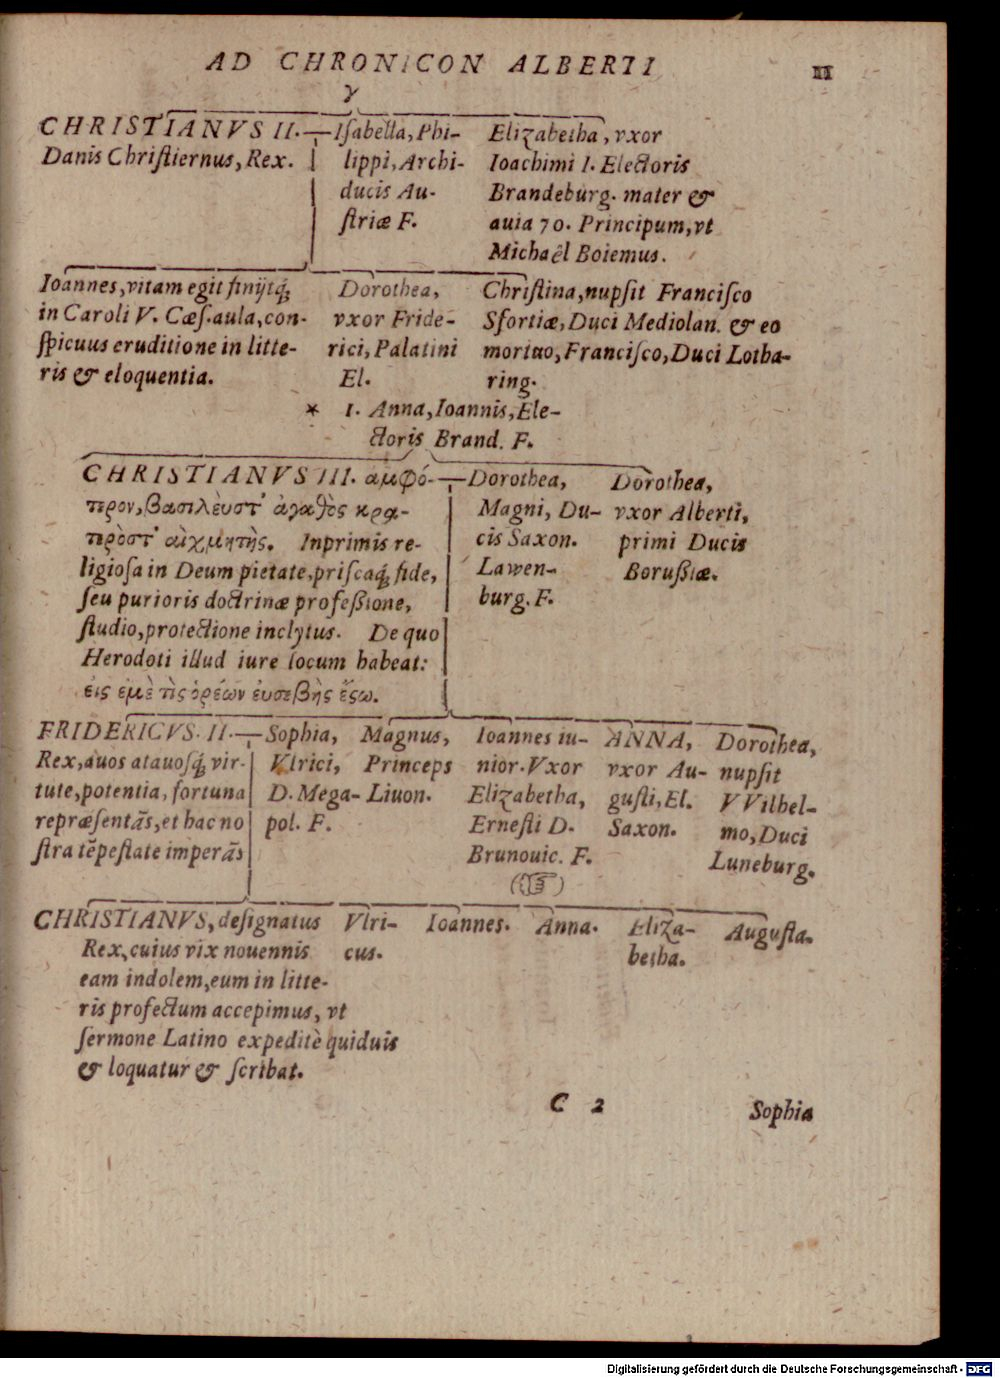 AD CHRONICON ALBERTI
II
γ
CHRISTIANVS II.
Danis Christiernus, Rex.
Isabella, Phi-
lippi, Archi-
ducis Au-
striæ F.
Elizabetha, vxor
Ioachimi I. Electoris
Brandeburg. mater &
auia 70. Principum, vt
Michaêl Boiemus.
Ioannes, vitam egit finijtq́;
in Caroli V. Cæs. aula, con-
spicuus eruditione in litte-
ris & eloquentia.
Dorothea,
vxor Fride-
rici, Palatini
El.
Christina, nupsit Francisco
Sfortiæ, Duci Mediolan. & eo
mortuo, Francisco, Duci Lotha-
ring.
* 1. Anna, Ioannis, Ele-
ctoris Brand. F.
CHRISTIANVS III. αμφό-
τερον, βασιλὲυστ' ἀγαθὸς κρα-
τερὸστ' αἰχμητὴς. Inprimis re-
ligiosa in Deum pietate, priscaq́; fide,
seu purioris doctrinæ professione,
studio, protectione inclytus. De quo
Herodoti illud iure locum habeat:
εἰς ἐμὲ τὶς ὁρέων ἐυσεβὴς ἔςω.
Dorothea,
Magni, Du-
cis Saxon.
Lawen-
burg. F.
Dorothea,
vxor Alberti,
primi Ducis
Borussiæ.
FRIDERICVS. II.
Rex, auos atauosq́; vir-
tute, potentia, fortuna
repræsentãs, et hac no
stra tẽpestate imperãs
Sophia,
Vlrici,
D. Mega-
pol. F.
Magnus,
Princeps
Liuon.
Ioannes iu-
nior. Vxor
Elizabetha,
Ernesti D.
Brunouic. F.
(☞)
ANNA,
vxor Au-
gusti, El.
Saxon.
Dorothea,
nupsit
VVilhel-
mo, Duci
Luneburg.
CHRISTIANVS, designatus
Rex, cuius vix nouennis
eam indolem, eum in litte-
ris profectum accepimus, vt
sermone Latino expeditè quiduis
& loquatur & scribat.
Vlri-
cus.
Ioannes.
Anna.
Eliza-
betha.
Augusta.
C 2
Sophia
Digitalisierung gefördert durch die Deutsche Forschungsgemeinschaft - DFG